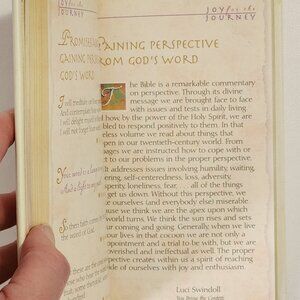 JOY for the
JOURNEY
PROMISES
GAINING PERSPECTIVE
GOD'S WORD
I will meditate on
And contemplate
I will delight myself
I will not forget Your
Your word is a lamp
And a light to my
So then faith comes
the word of God.
these are the
who hear the
JOY for the
JOURNEY
GAINING PERSPECTIVE
FROM GOD'S WORD
The Bible is a remarkable commentary
on perspective. Through its divine
message we are brought face to face
with issues and tests in daily living
how, by the power of the Holy Spirit, we are
bled to respond positively to them. In that
less volume we read about things that
open in our twentieth-century world. From
pages we are instructed how to cope with or
ct to our problems in the proper perspective.
It addresses issues involving humility, waiting,
ering, self-centeredness, loss, adversity,
sperity, loneliness, fear. . . . all of the things
get us down. Without this perspective, we
e ourselves (and everybody else) miserable
cause we think we are the apex upon which
world turns. We think the sun rises and sets
r coming and going. Generally, when we live
our lives in that cocoon we are not only a
ppointment and a trial to be with, but we are
owerished and ineffectual as well. The proper
pective creates within us a spirit of reaching
ide of ourselves with joy and enthusiasm.
Luci Swindoll
You Bring the Confetti